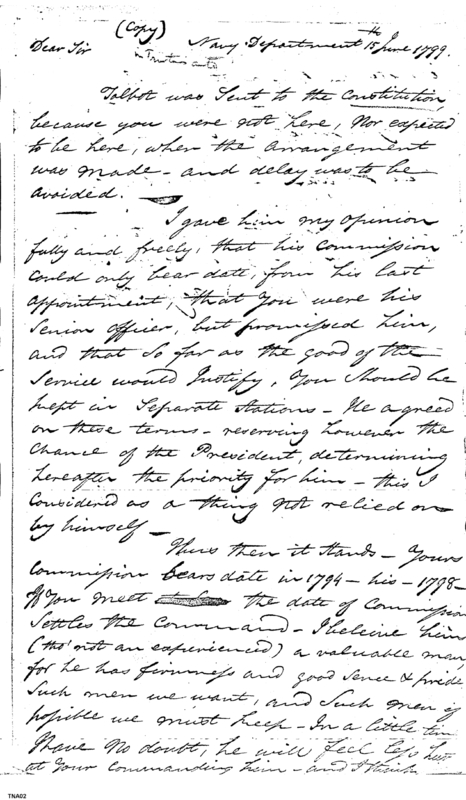 (Copy)
Navy Department 15th June 1799.
Dear Sir
Talbot was Sent to the Constitution,
because you were not here, Nor expected
to be here, when the arrangement
was made - and delay was to be
avoided. -
I gave him my opinion
fully and freely, that his commission
could only bear date, from his last
appointment, that You were his
Senior officer, but promissed him,
and that So far as the good of the
Service would Justify, You Should be
kept in Separate Stations - He agreed
on these terms - reserving however the
Chance of the President, determining
hereafter the priority for him - this I
Considered as a thing not relied on
by himself -
Thus then it Stands - Yours
Commission bears date in 1794 - his - 1798 -
If You meet the date of Commission
Settles the Command - I believe him
(tho' not an experienced) a valuable man,
for he has firmness and good Sence & pride
Such men we want, and Such men if
possible we must keep - In a little time
I have no doubt, he will feel less hurt
at Your Commanding him - and I think
TNA02